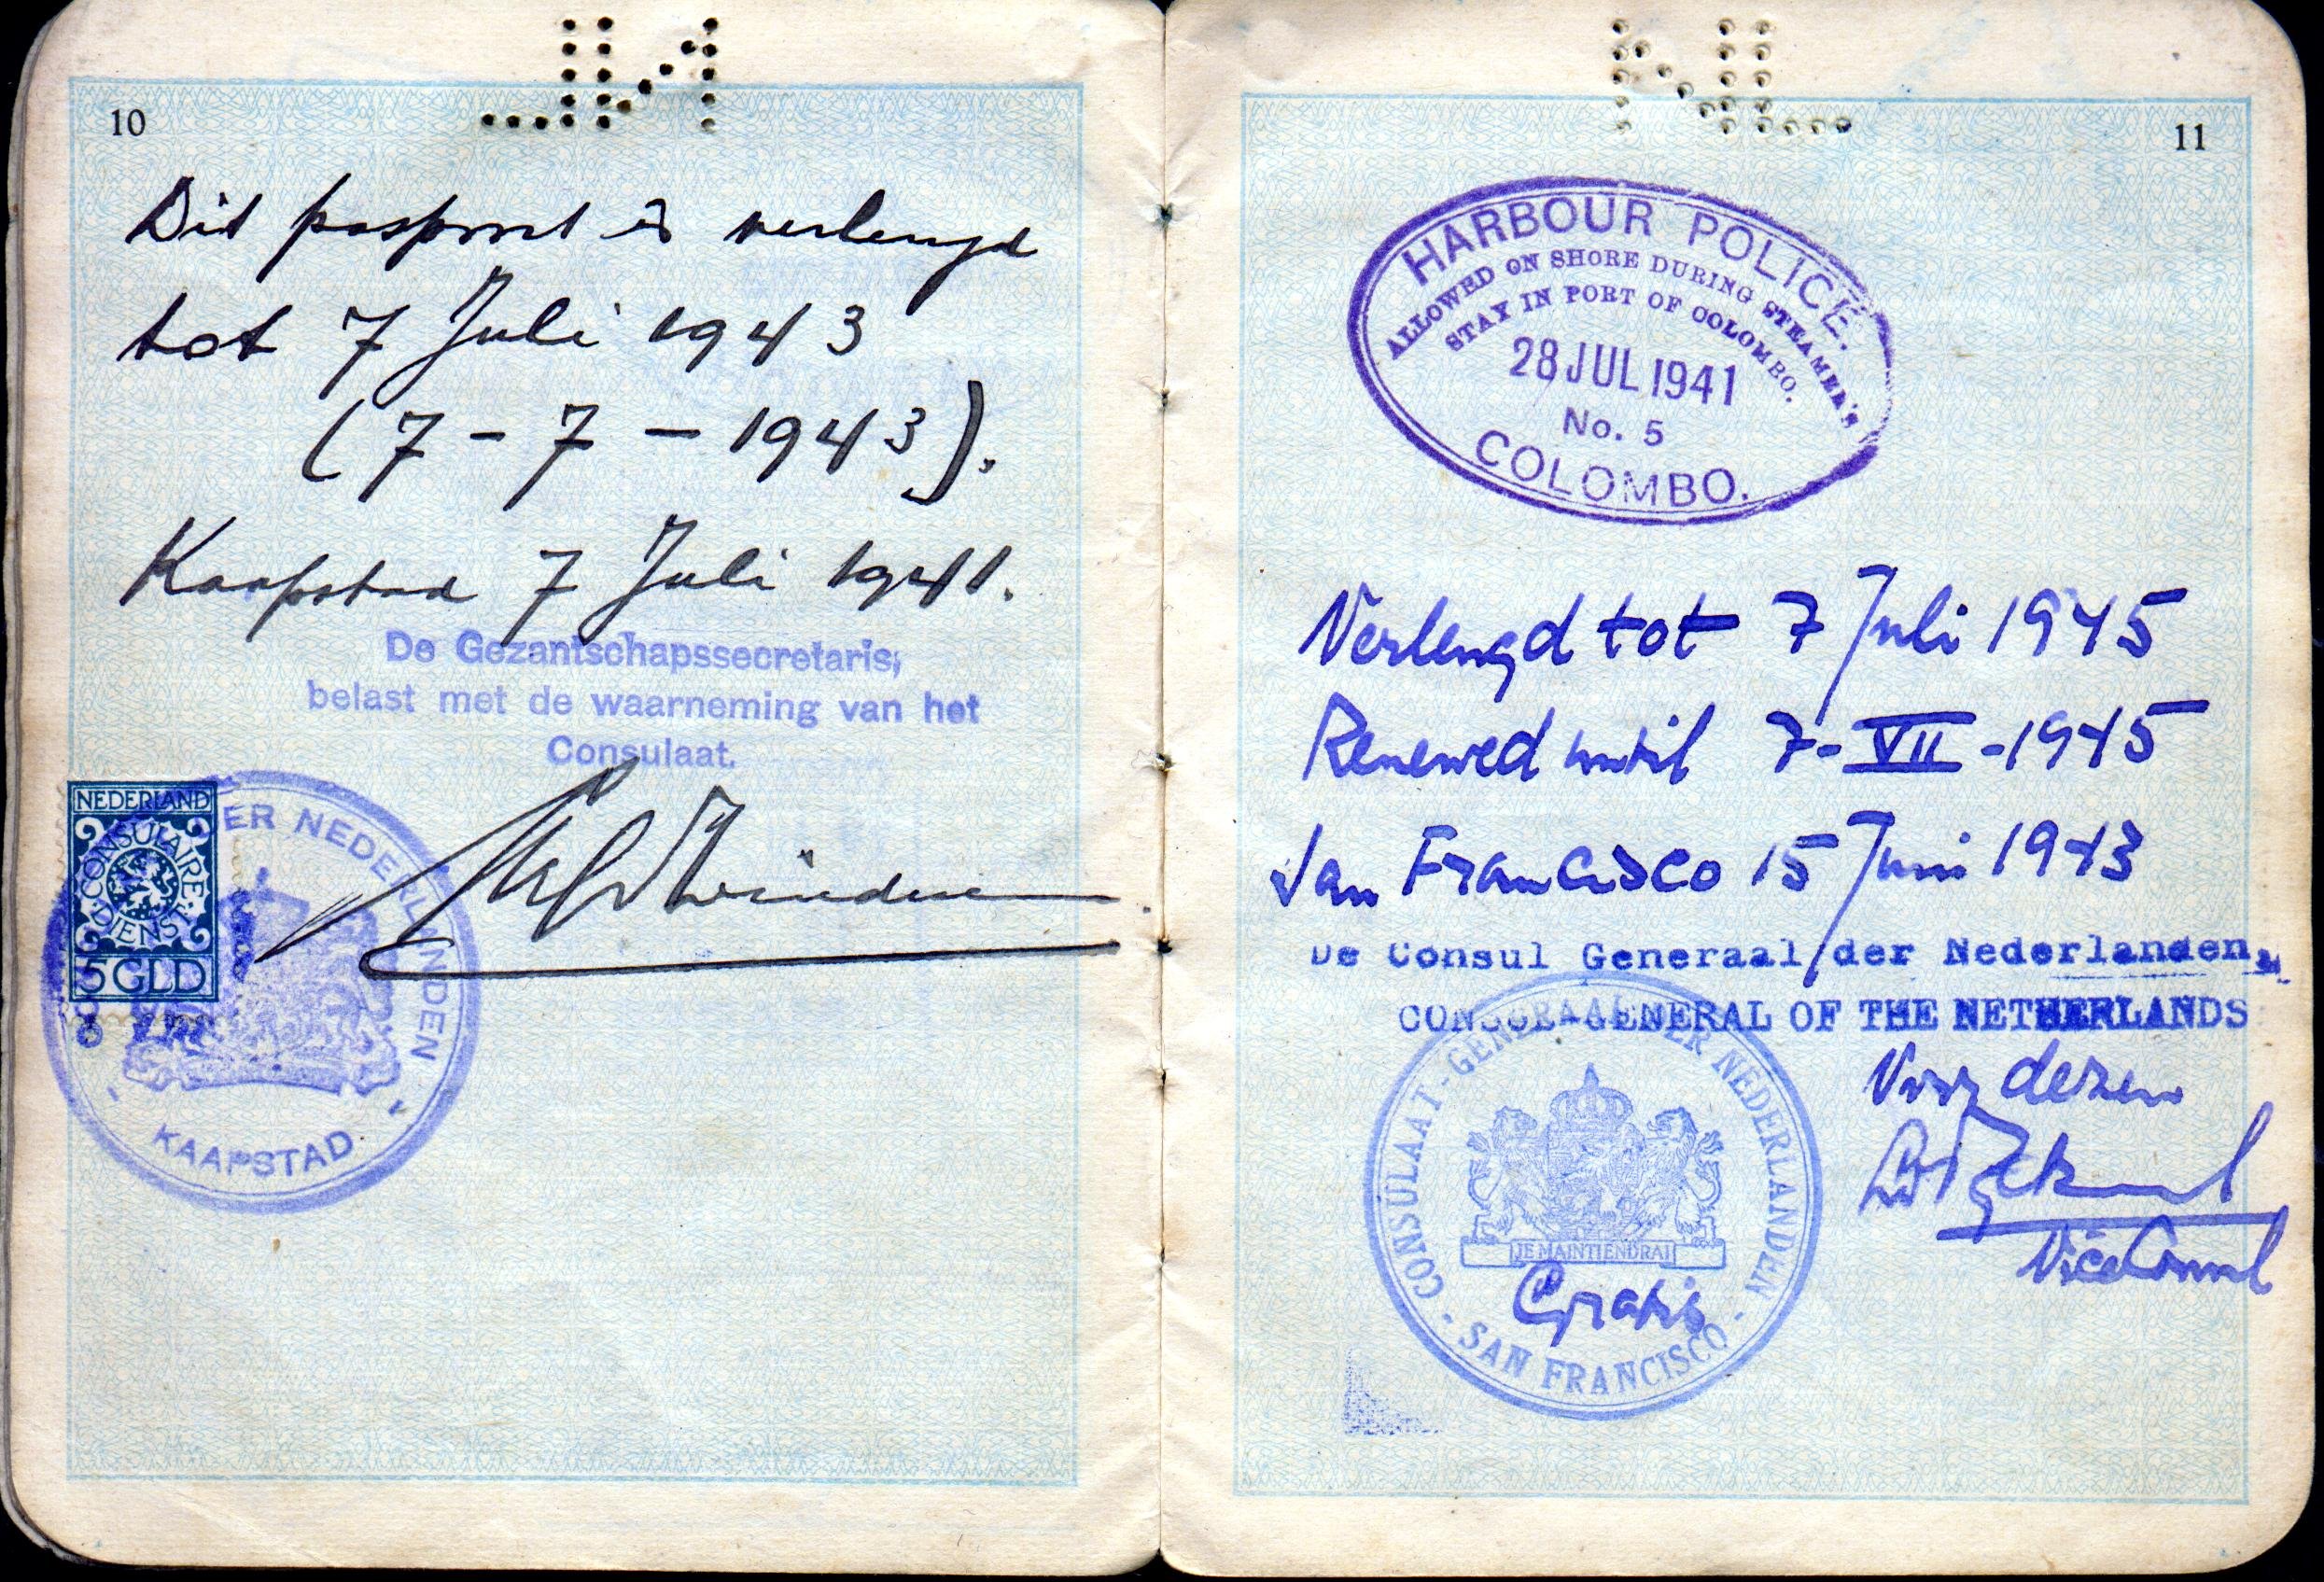 NL
10
Dit paspoort is verlengd
tot 7 Juli 1943
(7 - 7 - 1943).
Kaapstad 7 Juli 1941.
De Gezantschapssecretaris,
belast met de waarneming van het
Consulaat.
NEDERLAND
CONSULAIRE
DIENST
5 GLD
DER NEDERLANDEN
KAAPSTAD
NL
11
HARBOUR POLICE.
ALLOWED ON SHORE DURING STEAMER'S
STAY IN PORT OF COLOMBO.
28 JUL 1941
No. 5
COLOMBO.
Verlengd tot 7 Juli 1945
Renewed until 7-VII-1945
San Francisco 15 Juni 1943
De Consul Generaal der Nederlanden,
CONSUL-GENERAL OF THE NETHERLANDS
Voor dezen
Vice Consul
CONSULAAT-GENERAAL DER NEDERLANDEN
JE MAINTIENDRAI
Gratis
- SAN FRANCISCO -